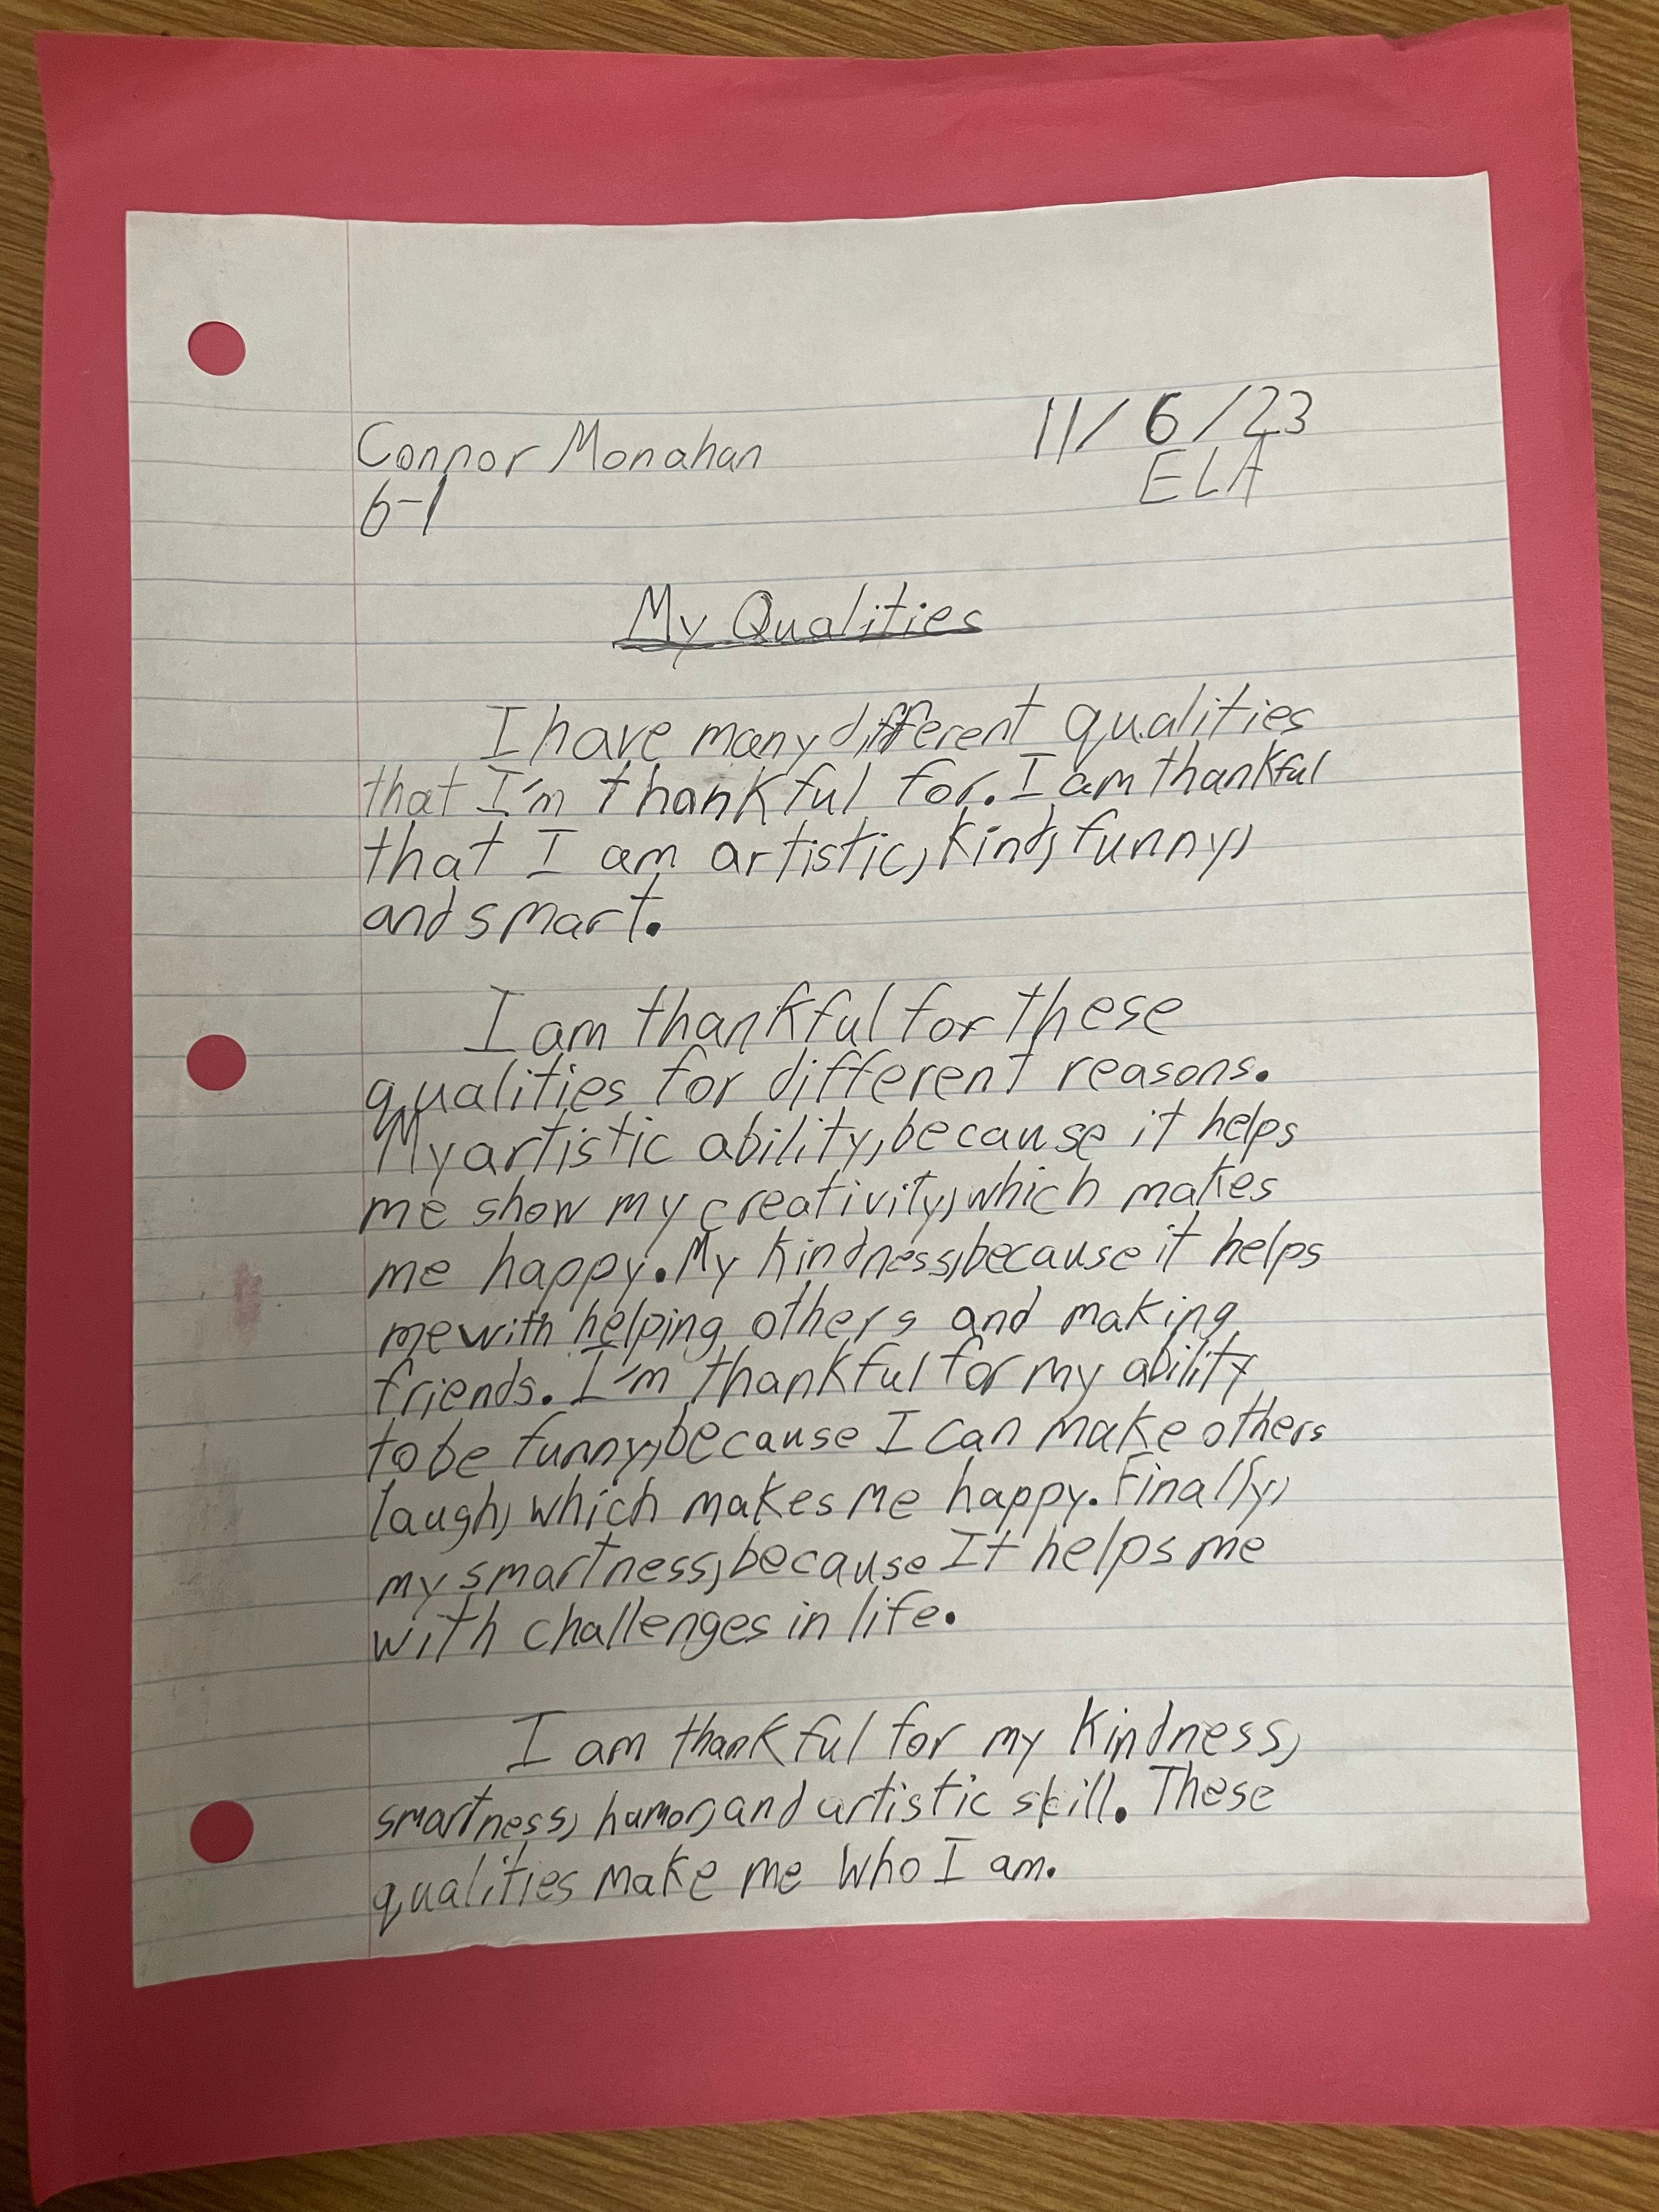 Connor Monahan 11/6/23
6-1 ELA
My Qualities
I have many different qualities
that I'm thankful for. I am thankful
that I am artistic, kind, funny,
and smart.
I am thankful for these
qualities for different reasons.
My artistic ability, because it helps
me show my creativity, which makes
me happy. My kindness, because it helps
me with helping others and making
friends. I'm thankful for my ability
to be funny, because I can make others
laugh, which makes me happy. Finally,
my smartness, because It helps me
with challenges in life.
I am thankful for my kindness,
smartness, humor, and artistic skill. These
qualities make me who I am.